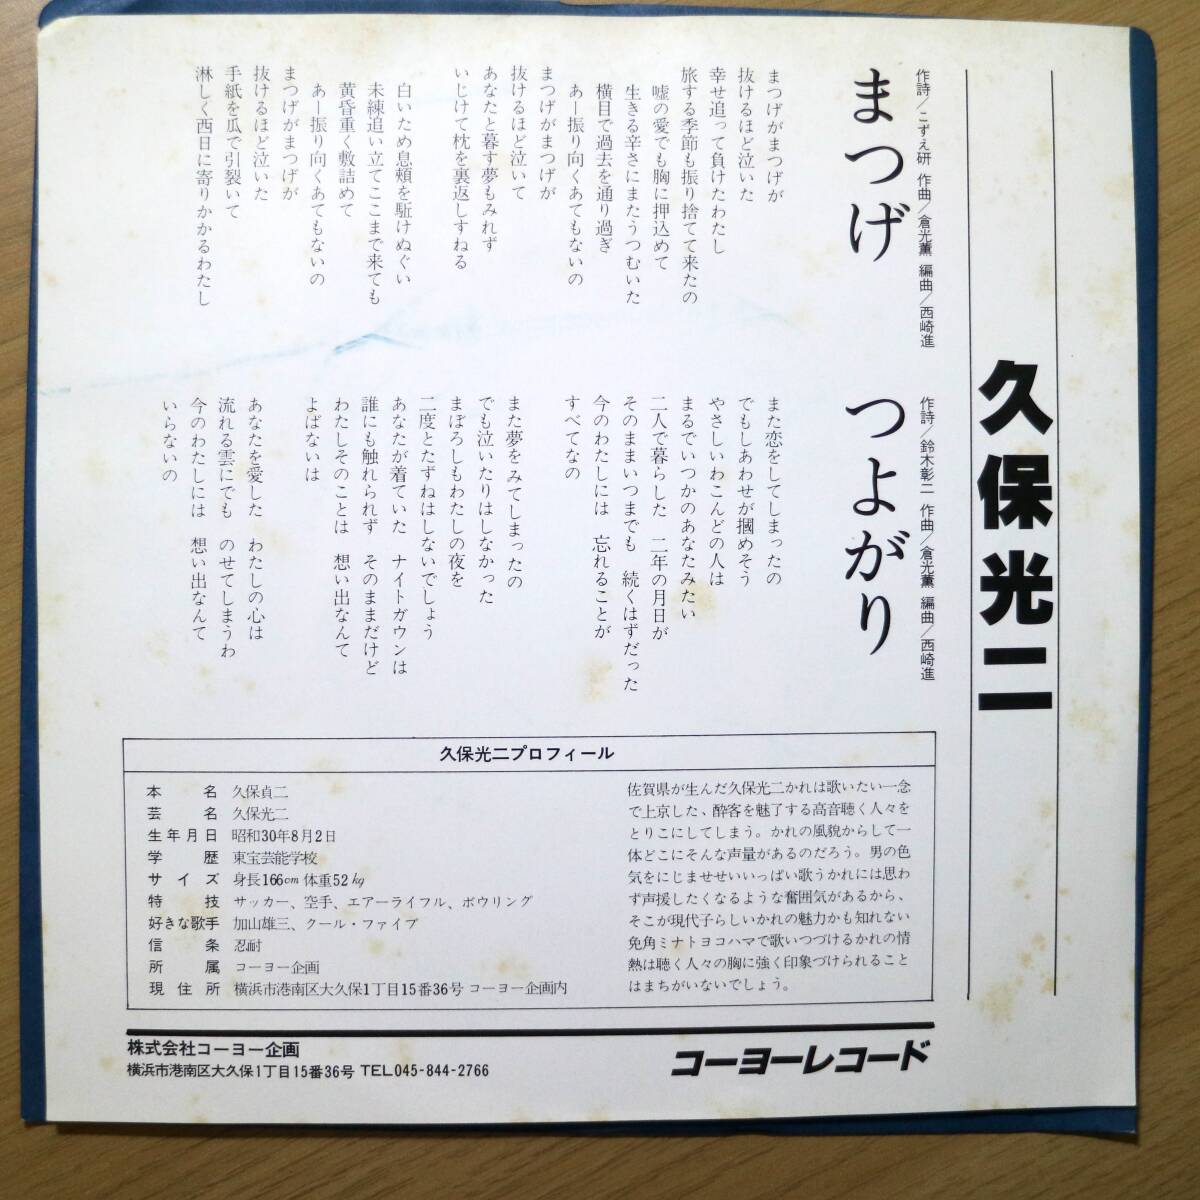 久保光二
まつげ
作詩／こずえ研 作曲／倉光薫 編曲／西崎進
まつげがまつげが
抜けるほど泣いた
幸せ追って負けたわたし
旅する季節も振り捨てて来たの
嘘の愛でも胸に押込めて
生きる辛さにまたうつむいた
横目で過去を通り過ぎ
あー振り向くあてもないの
まつげがまつげが
抜けるほど泣いて
あなたと暮す夢もみれず
いじけて枕を裏返しすねる
白いため息頬を駈けぬぐい
未練追い立てここまで来ても
黄昏重く敷詰めて
あー振り向くあてもないの
まつげがまつげが
抜けるほど泣いた
手紙を瓜で引裂いて
淋しく西日に寄りかかるわたし
つよがり
作詩／鈴木彰二 作曲／倉光薫 編曲／西崎進
また恋をしてしまったの
でもしあわせが摑めそう
やさしいわこんどの人は
まるでいつかのあなたみたい
二人で暮らした 二年の月日が
そのままいつまでも 続くはずだった
今のわたしには 忘れることが
すべてなの
また夢をみてしまったの
でも泣いたりはしなかった
まぼろしもわたしの夜を
二度とたずねはしないでしょう
あなたが着ていた ナイトガウンは
誰にも触れられず そのままだけど
わたしそのことは 想い出なんて
よばないは
あなたを愛した わたしの心は
流れる雲にでも のせてしまうわ
今のわたしには 想い出なんて
いらないの
久保光二プロフィール
本名 久保貞二
芸名 久保光二
生年月日 昭和30年8月2日
学歴 東宝芸能学校
サイズ 身長166cm 体重52kg
特技 サッカー、空手、エアーライフル、ボウリング
好きな歌手 加山雄三、クール・ファイブ
信条 忍耐
所属 コーヨー企画
現住所 横浜市港南区大久保1丁目15番36号 コーヨー企画内
佐賀県が生んだ久保光二かれは歌いたい一念
で上京した、酔客を魅了する高音聴く人々を
とりこにしてしまう。かれの風貌からして一
体どこにそんな声量があるのだろう。男の色
気をにじませせいいっぱい歌うかれには思わ
ず声援したくなるような奮囲気があるから、
そこが現代子らしいかれの魅力かも知れない
免角ミナトヨコハマで歌いつづけるかれの情
熱は聴く人々の胸に強く印象づけられること
はまちがいないでしょう。
株式会社コーヨー企画
横浜市港南区大久保1丁目15番36号 TEL045-844-2766
コーヨーレコード